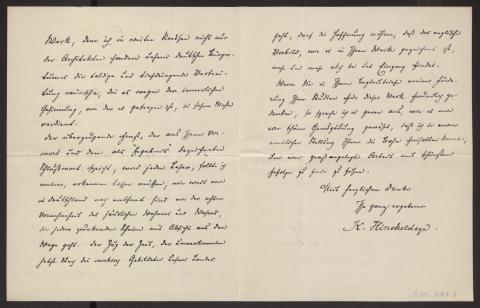 Werk, dem ich in weiten Kreisen nicht nur
der Architekten sondern unseres deutschen Bürger-
tums die baldige und tiefdringende Verbrei-
tung wünsche, die es wegen der innerlichen
Gesinnung, von der es getragen ist, in hohem Maße
verdient.
Der überzeugende Ernst, der aus Ihrem Vor-
wort und dem als Ergebnis bezeichneten
Schlußwort spricht, wird jeden Leser, sollte ich
meinen, erkennen lassen müssen, wie weit wir
in Deutschland noch entfernt sind von der echten
Vornehmheit des häuslichen Wohnens und Wesens,
die jedem prunkenden Scheine mit Absicht aus dem
Wege geht. Der Zug der Zeit, der unverkennbar
jetzt durch die wirklich Gebildeten unseres Landes
geht, darf die Hoffnung nähren, daß das englische
Vorbild, wie es in Ihrem Werk gezeichnet ist,
mehr und mehr auch bei uns Eingang findet.
Wenn Sie in Ihrem Begleitbriefe meiner Förde-
rung Ihrer Studien für dieses Werk freundlich ge-
denken, so spreche ich es gerne aus, wie es mir
zur schönen Genugtuung gereicht, daß ich in meiner
amtlichen Stellung Ihnen die Bahn freihalten konnte,
Ihre groß angelegte Arbeit mit schönstem
Erfolge zu Ende zu führen.
Mit herzlichem Danke
Ihr ganz ergebener
K. Hinckeldeyn.